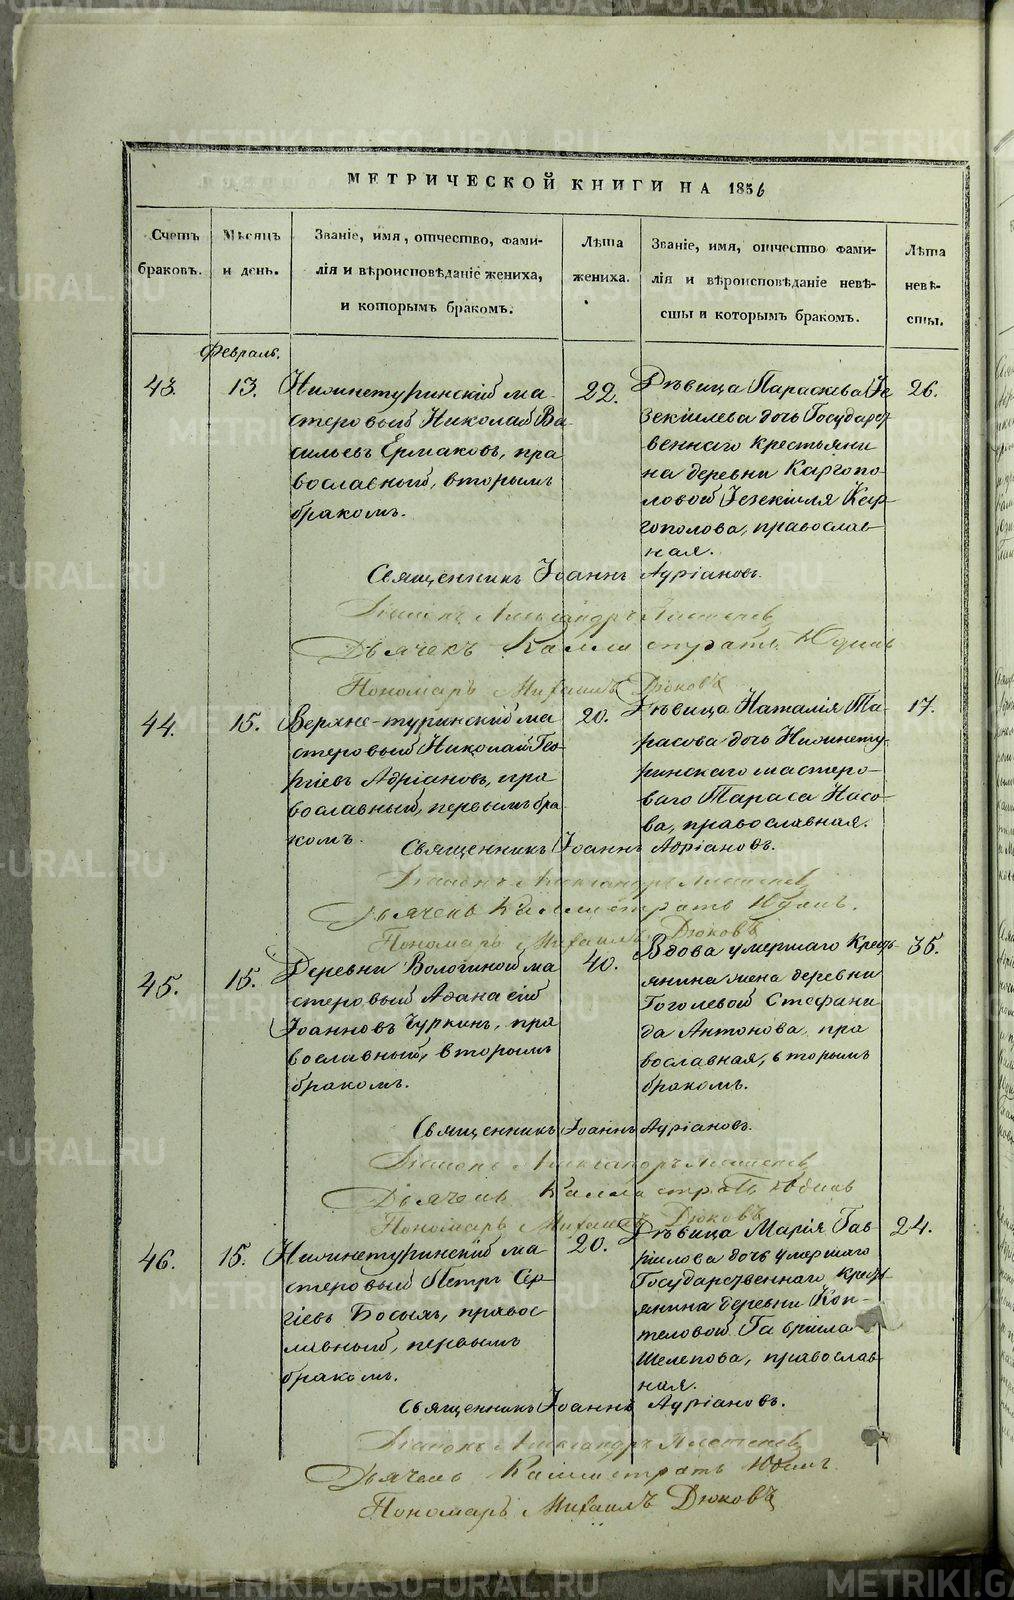 METRIKI.GASO-URAL.RU
МЕТРИЧЕСКОЙ КНИГИ НА 1856
Счетъ браковъ.
Мѣсяцъ и день.
Званіе, имя, отчество, фами-
лія и вѣроисповѣданіе жениха,
и которымъ бракомъ.
Лѣта
жениха.
Званіе, имя, отчество фами-
лія и вѣроисповѣданіе невѣ-
сты и которымъ бракомъ.
Лѣта
невѣ-
сты.
Февраль.
43.
13.
Нижнетуринскій ма-
стеровый Николай Ва
сильевъ Ермаковъ, пра
вославный, вторымъ
бракомъ.
22.
Дѣвица Параскева Іе
зекіилева дочь Государст
веннаго крестьяни
на деревни Каргопо-
ловой Іезекіиля Кар
гополова, православ-
ная.
26.
Священникъ Іоаннъ Адріановъ.
Діаконъ Александръ
Дьячекъ Каллистратъ Юдинъ
Пономарь Михаилъ Дюковъ
44.
15.
Верхне-туринскій ма
стеровый Николай Гео
ргіевъ Адріановъ, пра
вославный, первымъ бра
комъ.
20.
Дѣвица Наталія Та-
расова дочь Нижнету-
ринскаго мастеро-
ваго Тараса Насо-
ва, православная.
17.
Священникъ Іоаннъ Адріановъ.
Діаконъ Александръ
Дьячекъ Каллистратъ Юдинъ.
Пономарь Михаилъ Дюковъ
45.
15.
Деревни Вологиной ма
стеровый Аѳанасій
Іоанновъ Чуркинъ, пра
вославный, вторымъ
бракомъ.
40.
Вдова умершаго Крестъ
янина жена деревни
Гоголевой Стефани
да Антонова, пра
вославная, вторымъ
бракомъ.
35.
Священникъ Іоаннъ Адріановъ.
Діаконъ Александръ
Дьячекъ Каллистратъ Юдинъ
Пономарь Михаилъ Дюковъ
46.
15.
Нижнетуринскій ма
стеровый Петръ Сер
гіевъ Босыхъ, правос
лавный, первымъ
бракомъ.
20.
Дѣвица Марія Гав
ріилова дочь умершаго
Государственнаго крест
янина деревни Коп-
теловой Гавріила
Шелепова, православ
ная.
24.
Священникъ Іоаннъ Адріановъ.
Діаконъ Александръ
Дьячекъ Каллистратъ Юдинъ
Пономарь Михаилъ Дюковъ